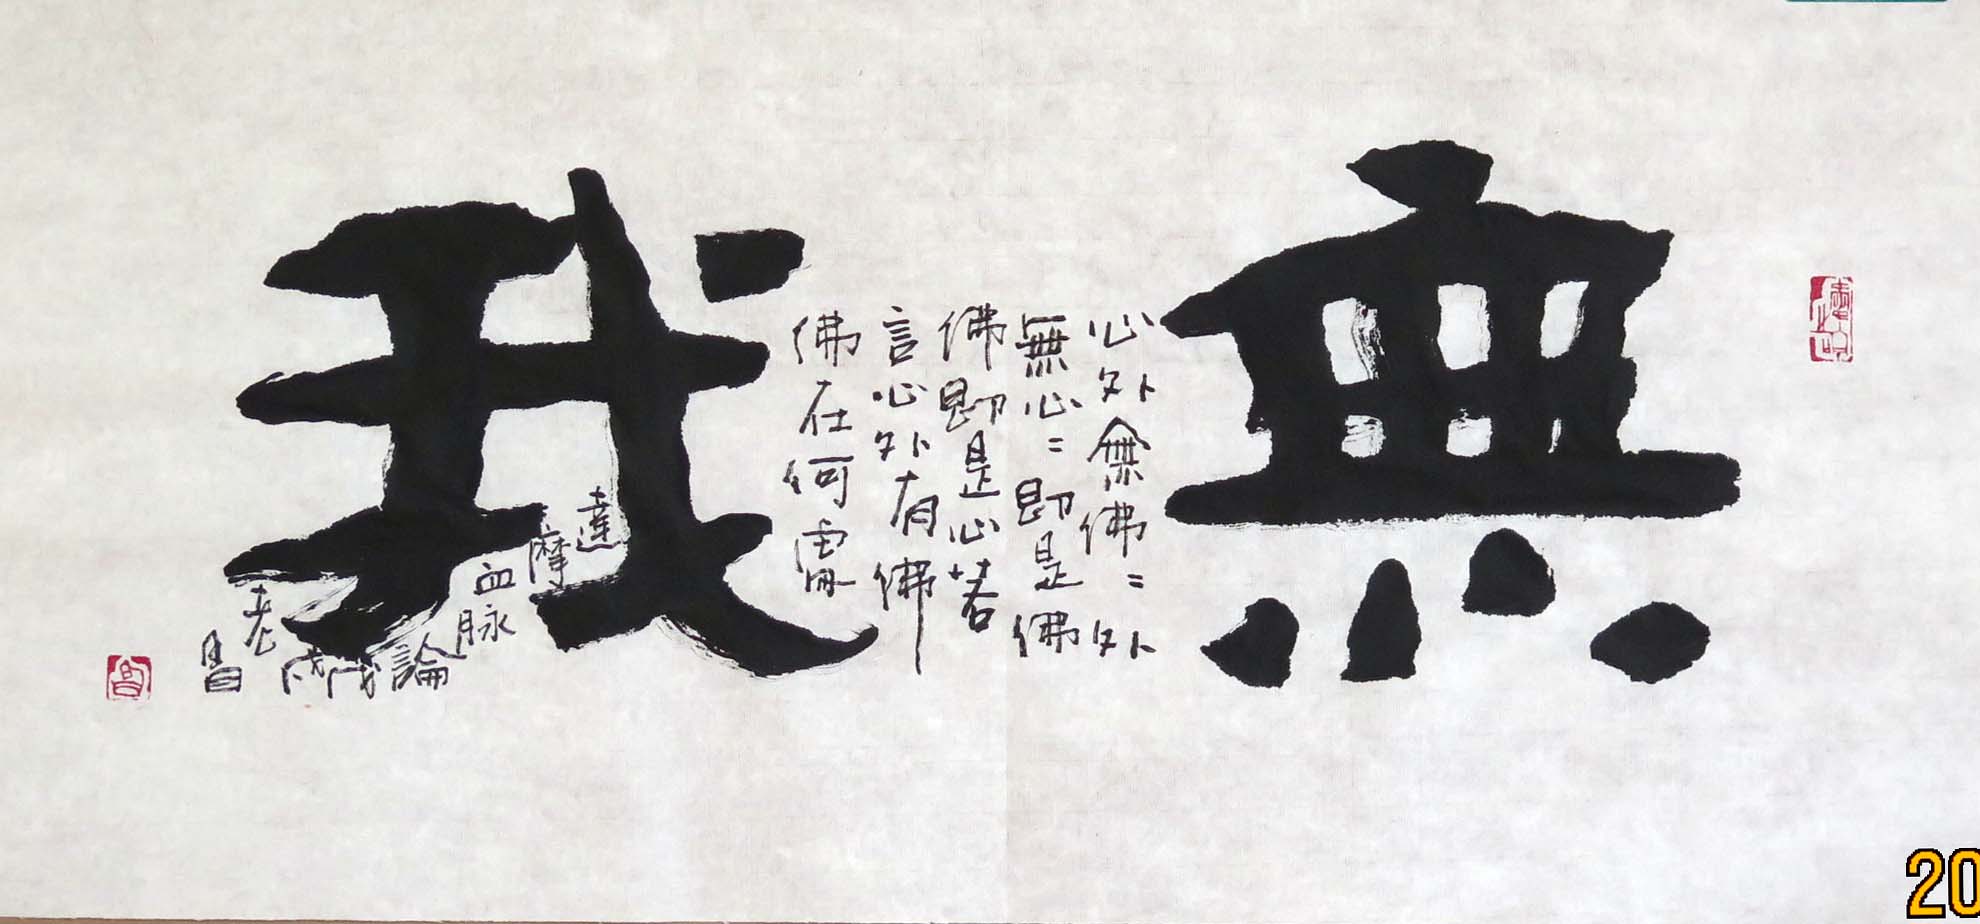 無我
心外無佛〻外
無心〻即是佛
佛即是心若
言心外有佛
佛在何處
達摩血脉論
戊戌
老昌
20